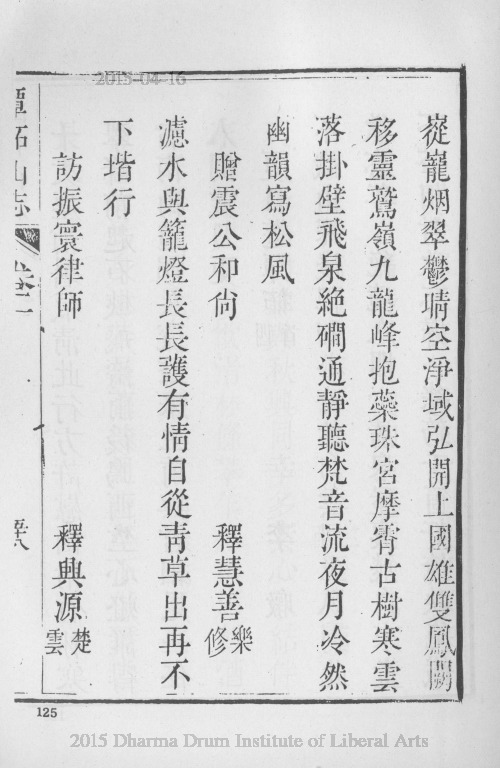 2015-04-16
嵸巃烟翠鬱晴空淨域弘開上國雄雙鳳闕
移靈鷲嶺九龍峰抱蘂珠宮摩霄古樹寒雲
落掛壁飛泉絶磵通靜聽梵音流夜月冷然
幽韻寫松風
贈震公和尙 釋慧善 樂修
濾水與籠燈長長護有情自從青草出再不
下堦行
訪振寰律師 釋興源 楚雲
潭柘山志 卷二
125
2015 Dharma Drum Institute of Liberal Arts